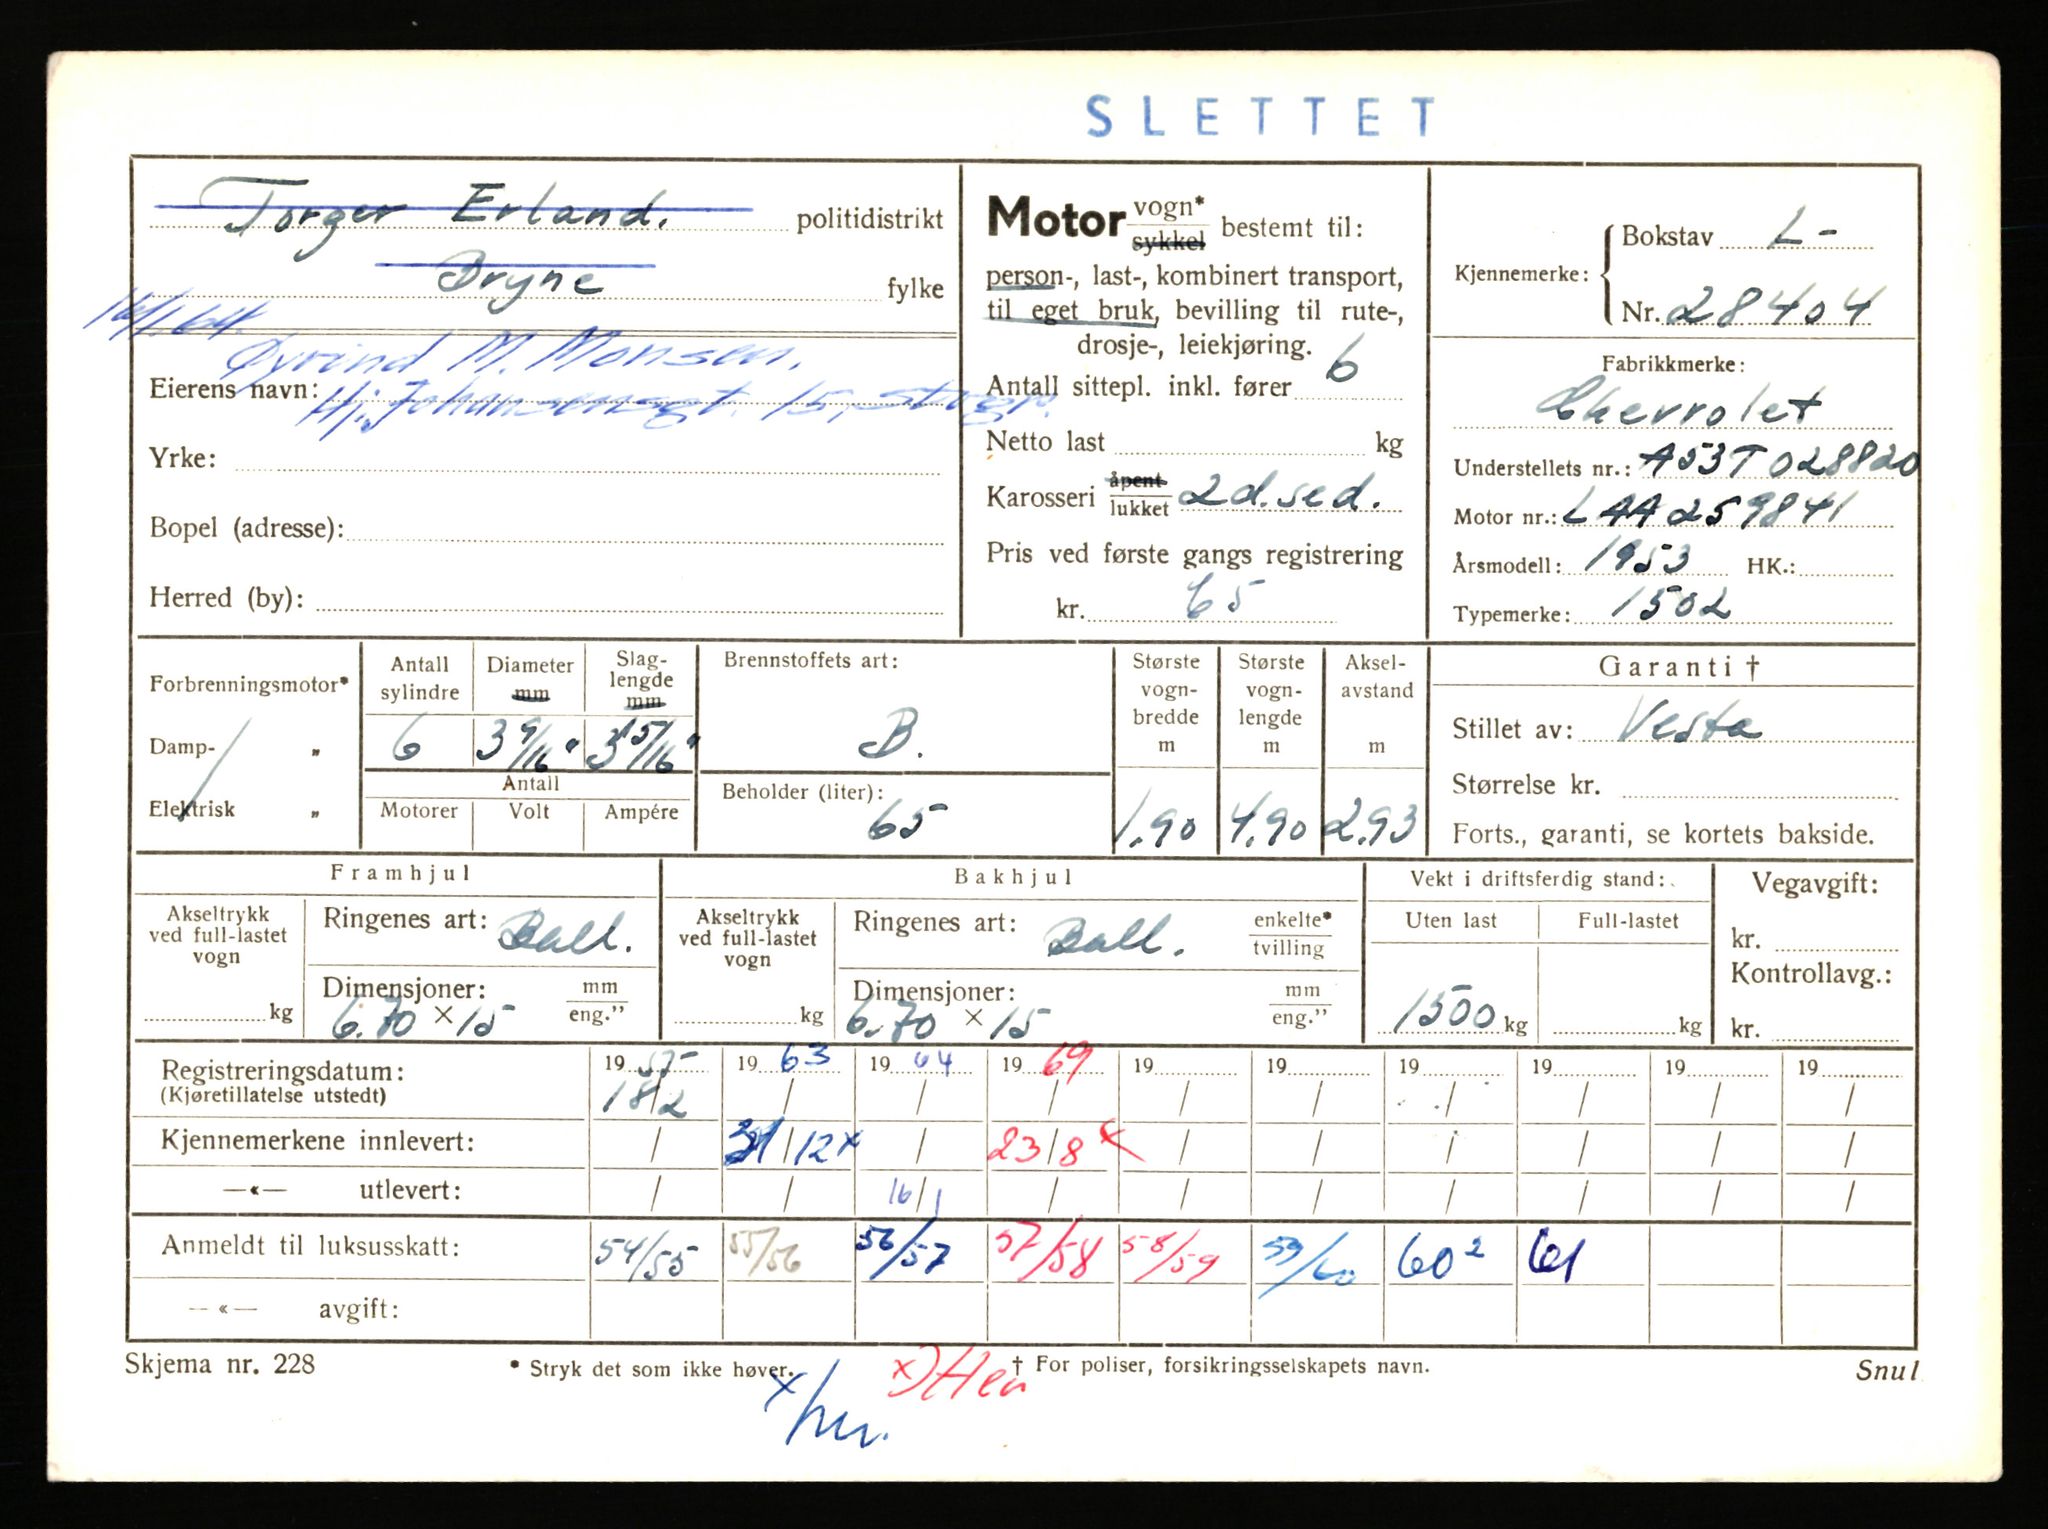 SLETTET
Torger Erland. politidistrikt
Bryne fylke
16/1.64.
Øyvind M. Monsen.
Eierens navn: Hj. Johansensgt. 15, Stvgr.
Yrke:
Bopel (adresse):
Herred (by):
Motor vogn* sykkel bestemt til:
person-, last-, kombinert transport,
til eget bruk, bevilling til rute-,
drosje-, leiekjøring.
Antall sittepl. inkl. fører 6
Netto last kg
Karosseri åpent lukket 2d.sed.
Pris ved første gangs registrering
kr. 65
Kjennemerke: Bokstav L-
Nr. 28404
Fabrikkmerke:
Chevrolet
Understellets nr.: A53T028820
Motor nr.: LAA259841
Årsmodell: 1953 HK.:
Typemerke: 1502
Forbrenningsmotor*
Damp- „
Elektrisk „
Antall sylindre Diameter mm Slag-lengde mm
6 3 9/16" 3 15/16"
Antall
Motorer Volt Ampére
Brennstoffets art:
B.
Beholder (liter):
65
Største vogn-bredde m
1.90
Største vogn-lengde m
4.90
Aksel-avstand m
2.93
Garanti †
Stillet av: Vesta
Størrelse kr.
Forts., garanti, se kortets bakside.
Framhjul
Akseltrykk ved full-lastet vogn
kg
Ringenes art: Ball.
Dimensjoner: mm eng.”
6.70 × 15
Bakhjul
Akseltrykk ved full-lastet vogn
kg
Ringenes art: Ball. enkelte* tvilling
Dimensjoner: mm eng.”
6.70 × 15
Vekt i driftsferdig stand:
Uten last Full-lastet
1500 kg kg
Vegavgift:
kr.
Kontrollavg.:
kr.
Registreringsdatum: 1957 1963 1964 1969 19 19 19 19 19 19
(Kjøretillatelse utstedt) 18/2 / / / / / / / / /
Kjennemerkene innlevert: / 31/12 x / 23/8 x / / / / / /
—«— utlevert: / / 16/1 / / / / / / /
Anmeldt til luksusskatt: 54/55 55/56 56/57 57/58 58/59 59/60 60² 61
—«— avgift:
Skjema nr. 228 * Stryk det som ikke høver. † For poliser, forsikringsselskapets navn. Snul